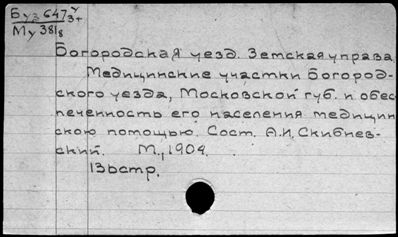 Буз 647 У/3+
Му 381/8
Богородская уезд. Земская управа
Медицинские участки Богород-
ского уезда, Московской губ. и обес
печенность его населения медицин
скою помощью. Сост. А.И. Скибнев-
ский. М., 1904.
135стр.